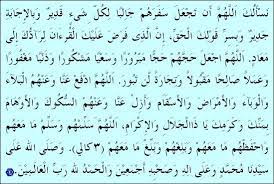 نَسْأَلُكَ اللَّهُمَّ أَنْ تَجْعَلَ سَفَرَهُمْ جَالِبًا لِكُلِّ شَيْءٍ قَدِيرٌ وَبِالْإِجَابَةِ
جَدِيرٌ وَيَسِّرْ قَوْلَكَ الْحَقَّ. إِنَّ الَّذِي فَرَضَ عَلَيْكَ الْقُرْءَانَ لَرَادُّكَ إِلَى
مَعَادٍ. اللَّهُمَّ اجْعَلْ حَجَّهُمْ حَجًّا مَبْرُورًا وَسَعْيًا مَشْكُورًا وَذَنْبًا مَغْفُورًا
وَعَمَلًا صَالِحًا مَقْبُولًا وَتِجَارَةً لَنْ تَبُورَ. اللَّهُمَّ ادْفَعْ عَنَّا وَعَنْهُمُ الْبَلَاءَ
وَالْوَبَاءَ وَالْأَمْرَاضَ وَالْأَسْقَامَ وَأَزِلْ عَنَّا وَعَنْهُمُ السُّكُوكَ وَالْأَوْهَامَ
بِمَنِّكَ وَكَرَمِكَ يَا ذَاالْجَلَالِ وَالْإِكْرَامِ، اللَّهُمَّ سَلِّمْهُمْ وَسَلِّمْ مَا مَعَهُمْ
وَاحْفَظْهُمْ مَا مَعَهُمْ وَبَلِّغْهُمْ وَبَلِّغْ مَا مَعَهُمْ (٣كالي). وَصَلَّى اللهُ عَلَى
سَيِّدِنَا مُحَمَّدٍ وَعَلَى آلِهِ وَصَحْبِهِ أَجْمَعِينَ وَالْحَمْدُ للهِ رَبِّ الْعَالَمِينَ.